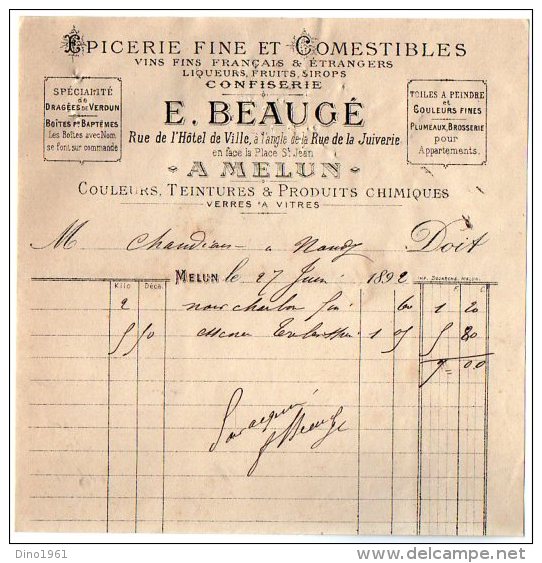 EPICERIE FINE ET COMESTIBLES
VINS FINS FRANÇAIS & ÉTRANGERS
LIQUEURS, FRUITS, SIROPS
CONFISERIE
SPÉCIALITÉ
de
DRAGÉES DE VERDUN
BOÎTES Pr BAPTÊMES
Les Boîtes avec Nom
se font sur commande
E. BEAUGÉ
Rue de l'Hôtel de Ville, à l'angle de la Rue de la Juiverie
en face la Place St Jean
A MELUN
TOILES A PEINDRE
et
COULEURS FINES
PLUMEAUX, BROSSERIE
pour
Appartements.
COULEURS, TEINTURES & PRODUITS CHIMIQUES
VERRES A VITRES
M Chandian a Nandy Doit
MELUN le 27 Juin 1892
IMP. DELAROCHE, MELUN.
Kilo Déca F C
2 noir charbon fin 60 1 20
5 50 essence 1 05 5 80
7 = 00
Pour acquit
E Beaugé
Dino1961
delcampe.net